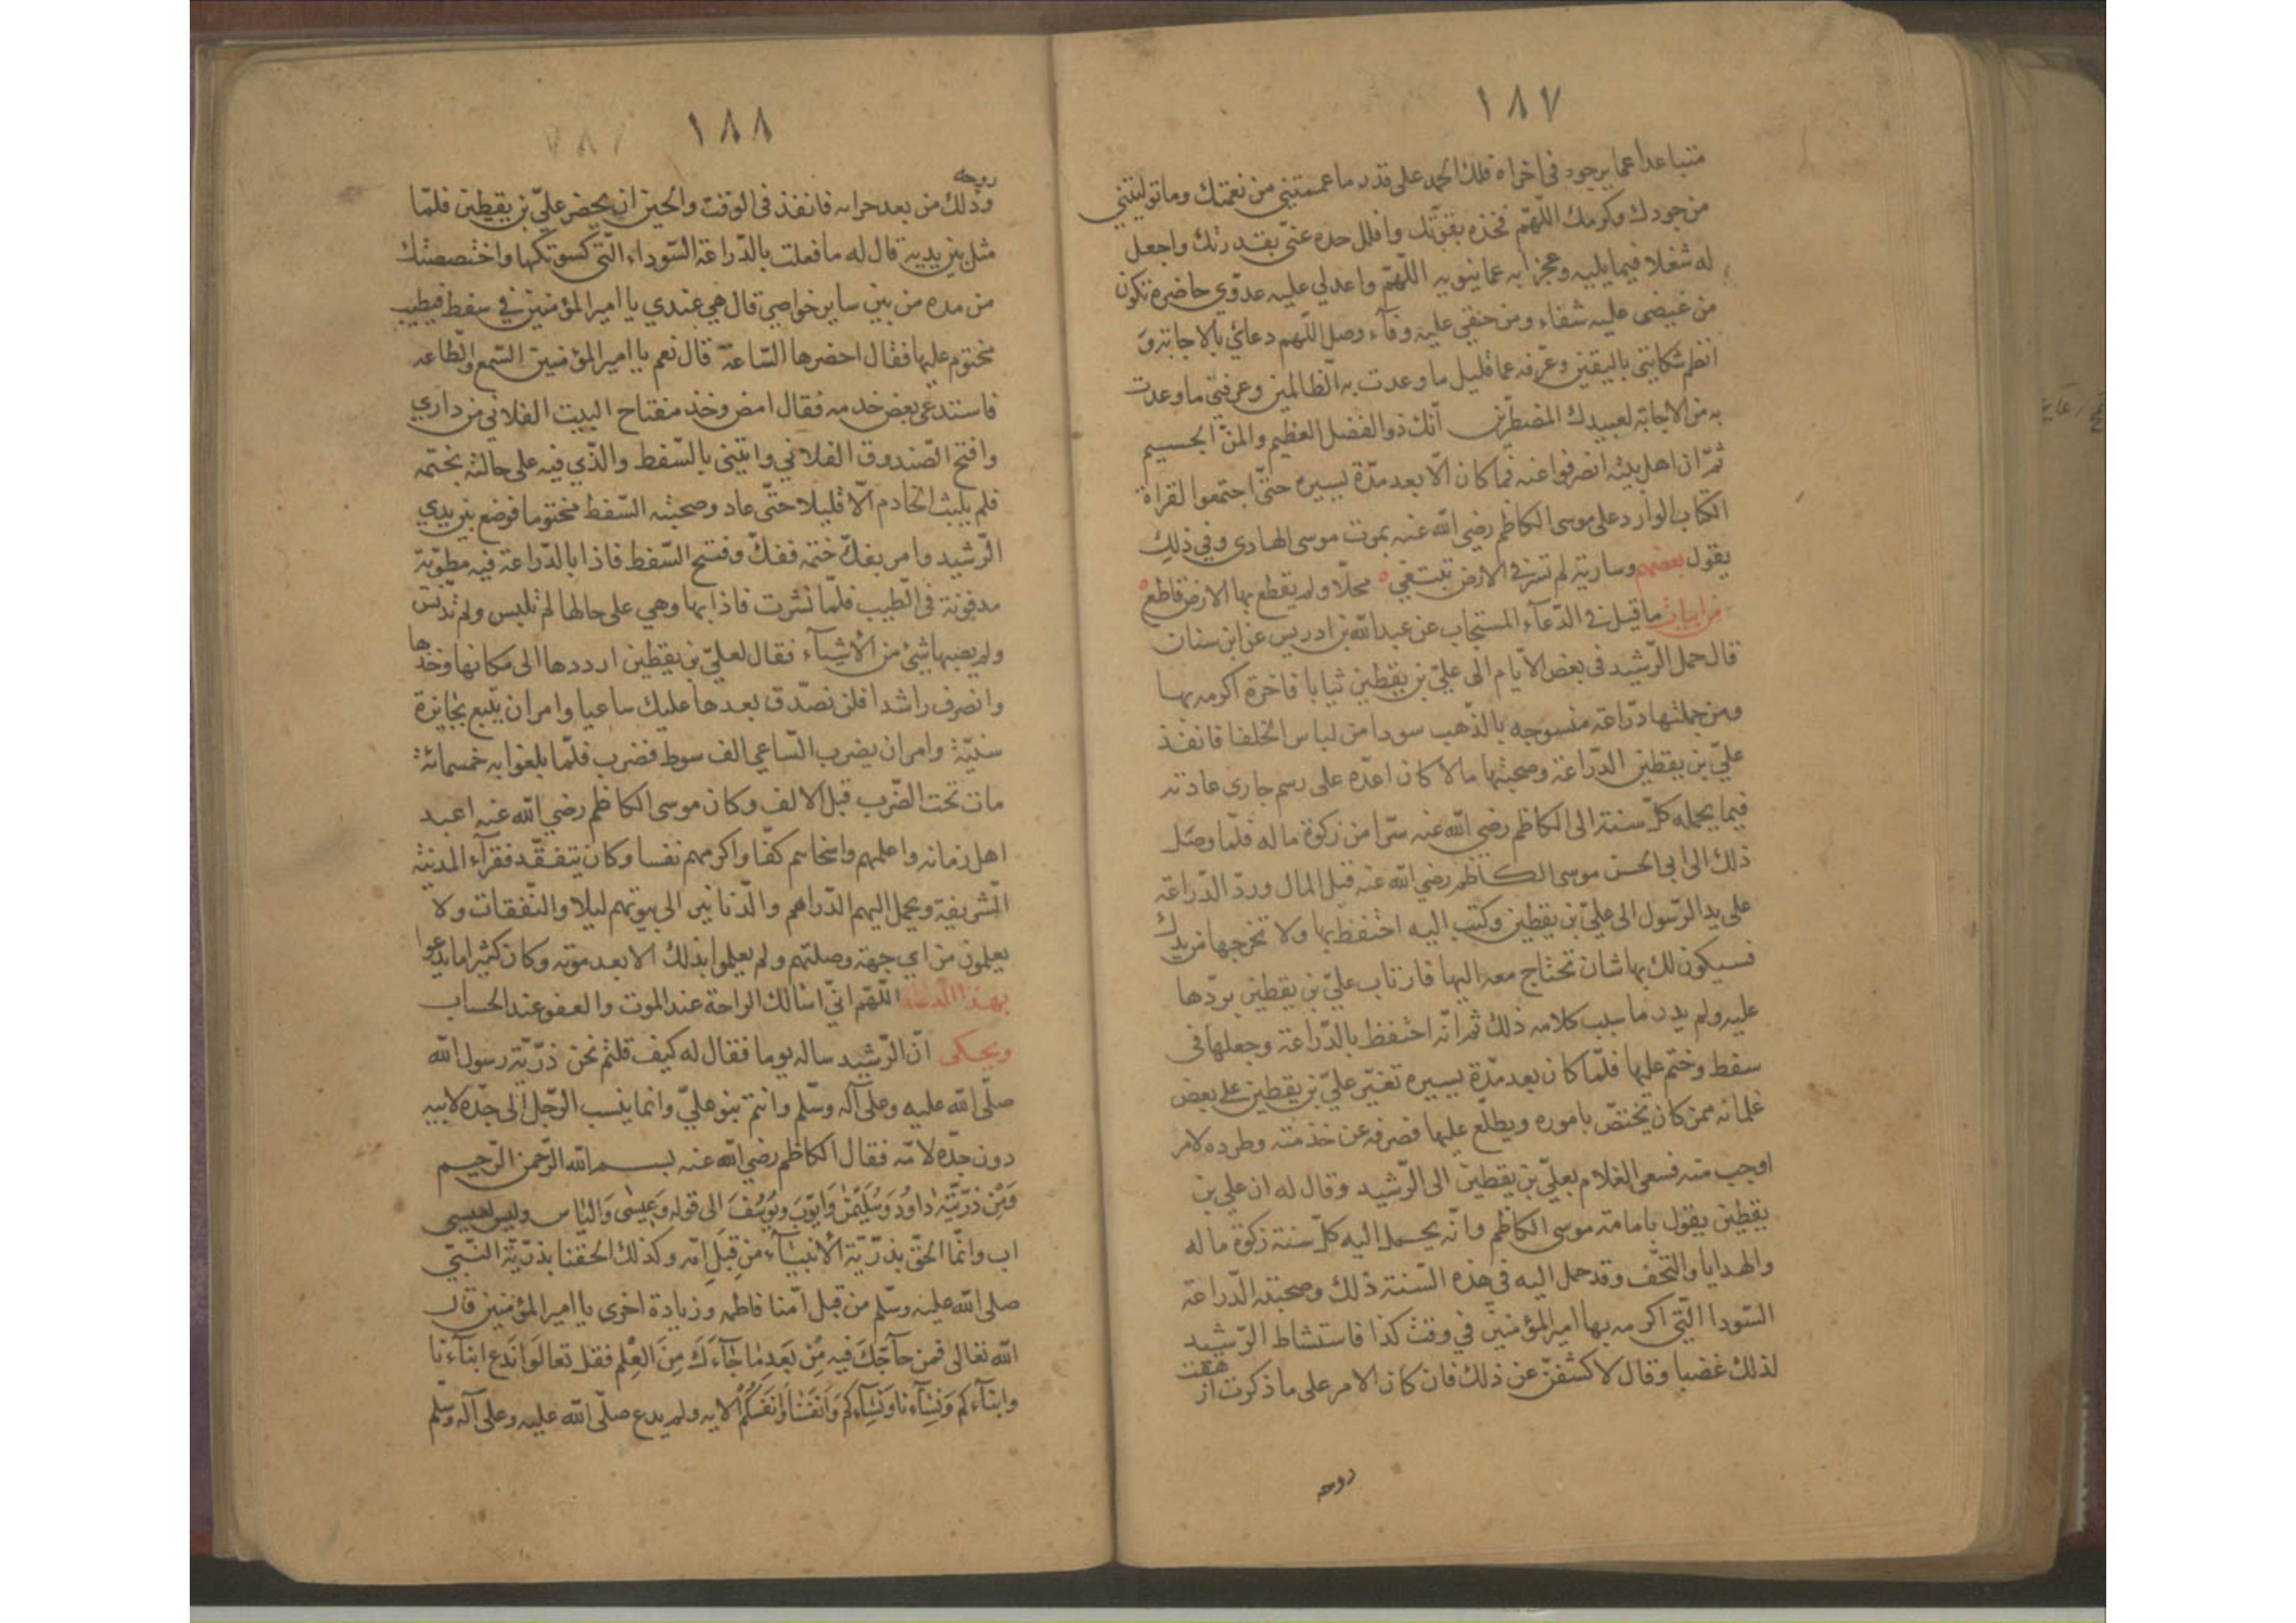 ١٨٧
متباعدا عما يرجوه في اخراه فلك الحمد على قدر ما عممتني من نعمتك وما توليتني
من جودك وكرمك اللهم فخذه بقوتك وافلل حده عني بقدرتك واجعل
له شغلا فيما يليه وعجزا به عما ينويه اللهم واعدلي عليه عدوي حاضره تكون
من غيضي عليه شفاء ومن حنقي عليه وفآء وصل اللهم دعائي بالاجابة و
انظم شكايتي باليقين وعرفه عما قليل ما وعدت به الظالمين وعرفني ما وعدت
به من الاجابة لعبيدك المضطرين انك ذو الفضل العظيم والمن الجسيم
ثمّ ان اهل بيته انصرفوا عنه فما كان الّا بعد مدّة يسيره حتّى اجتمعوا لقراة
الكتاب الوارد على موسى الكاظم رضي الله عنه بموت موسى الهادى وفي ذلك
يقول بعضهم وسارية لم تسر في الارض تبتغي محلّا ولم يقطع بها الارض قاطع
من ابيات ما قيل في الدّعآء المستجاب عن عبد الله بن ادريس عن ابن سنان
قال حمل الرّشيد فى بعض الايّام الى عليّ بن يقطين ثيابا فاخرة اكرمه بها
ومن جملتها درّاعة منسوجه بالذّهب سودا من لباس الخلفا فانفذ
عليّ بن يقطين الدّراعة وصحبتها مالا كان اعدّه على رسم جارى عادته
فيما يحمله كلّ سنة الى الكاظم رضي الله عنه سرّا من زكوة ماله فلمّا وصل
ذلك الى ابي الحسن موسى الكاظم رضي الله عنه قبل المال وردّ الدّراعة
على يد الرّسول الى عليّ بن يقطين وكتب اليه احتفظ بها ولا تخرجها من يدك
فسيكون لك بها شان تحتاج معه اليها فارتاب عليّ بن يقطين بردّها
عليه ولم يدر ما سبب كلامه ذلك ثم انّه احتفظ بالدّراعة وجعلها فى
سفط وختم عليها فلمّا كان بعد مدّة يسيره تغيّر عليّ بن يقطين على بعض
غلمانه ممن كان يختصّ باموره ويطلّع عليها فصرفه عن خدمته وطرده لامر
اوجب منه فسعى الغلام بعليّ بن يقطين الى الرّشيد وقال له ان علي بن
يقطين يقول بامامة موسى الكاظم وانّه يحمل اليه كلّ سنة زكوة ماله
والهدايا والتّحف وقد حمل اليه في هذه السّنة ذلك وصحبته الدّراعة
السّودا الّتي اكرمه بها امير المؤمنين في وقت كذا فاستشاط الرّشيد
لذلك غضبا وقال لاكشفنّ عن ذلك فان كان الامر على ما ذكرت ازهقت
روحه
١٨٨
روحه
وذلك من بعد فانفذ فى الوقت والحين ان يحضر عليّ بن يقطين فلمّا
مثل بين يديه قال له ما فعلت بالدّراعة السّوداء الّتى كسوتكها واختصصتك
من مده من بين ساير خواصي قال هي عندي يا امير المؤمنين في سفط فيطيب
مختوم عليها فقال احضرها السّاعة قال نعم يا امير المؤمنين السّمع والطّاعه
فاستدعى بعض خدمه فقال امض وخذ مفتاح البيت الفلاني من داري
وافتح الصّندوق الفلاني وايتيني بالسّفط والّذي فيه على حالته بختمه
فلم يلبث الخادم الّا قليلا حتّى عاد وصحبته السّفط مختوما فوضع بين يدي
الرّشيد وامر بفكّ ختمه ففكّ وفتح السّفط فاذا بالدّراعة فيه مطويّة
مدفونة فى الطّيب فلمّا نشرت فاذا بها وهي على حالها لم تلبس ولم تدنس
ولم يصبها شئ من الأشيآء فقال لعليّ بن يقطين ارددها الى مكانها وخذها
وانصرف راشدا فلن نصّدق بعدها عليك ساعيا وامر ان يتبع بجايزة
سنيّة وامر ان يضرب السّاعي الف سوط فضرب فلمّا بلغوا به خمسمائة
مات تحت الضّرب قبل الالف وكان موسى الكاظم رضي الله عنه اعبد
اهل زمانه واعلمهم واسخاهم كفّا واكرمهم نفسا وكان يتفقّد فقرآء المدينة
الشّريفة ويحمل اليهم الدّراهم والدّنانير الى بيوتهم ليلا والنّفقات ولا
يعلمون من اي جهة وصلتهم ولم يعلموا بذلك الا بعد موته وكان كثيرا ما يدعوا
بهذا الدعاء اللّهم انّي اسالك الراحة عند الموت والعفو عند الحساب
ويحكى انّ الرّشيد ساله يوما فقال له كيف قلتم نحن ذرّيّة رسول الله
صلّى الله عليه وعلى آله وسلّم وانتم بنو عليّ وانما ينسب الرّجل الى جدّه لابيه
دون جدّه لامّه فقال الكاظم رضي الله عنه بسم الله الرّحمن الرّحيم
وَمِن ذرّيّته داوُدَ وَسُلَيْمٰنَ وَايّوبَ وَيُوسُفَ الى قوله وَعِيسٰى وَاليَاس وليس لعيسى
اب وانّما الحق بذرّيّة الأنبيآء من قِبَلِ امّه وكذلك الحقنا بذرّيّة النّبيّ
صلى الله عليه وسلّم من قبل امّنا فاطمه وزيادة اخرى يا امير المؤمنين قال
الله تعالى فمن حآجّكَ فيه مِنْ بَعدِ مٰا جٰآءَكَ مِنَ العِلْم فقل تعالَوا نَدع ابنآءنا
وابنآءكم وَنِسٰآءنا وَنِسٰآءكم وَانفسَنٰا وَانفسَكُم الايه ولم يدع صلّى الله عليه وعلى آله وسلّم